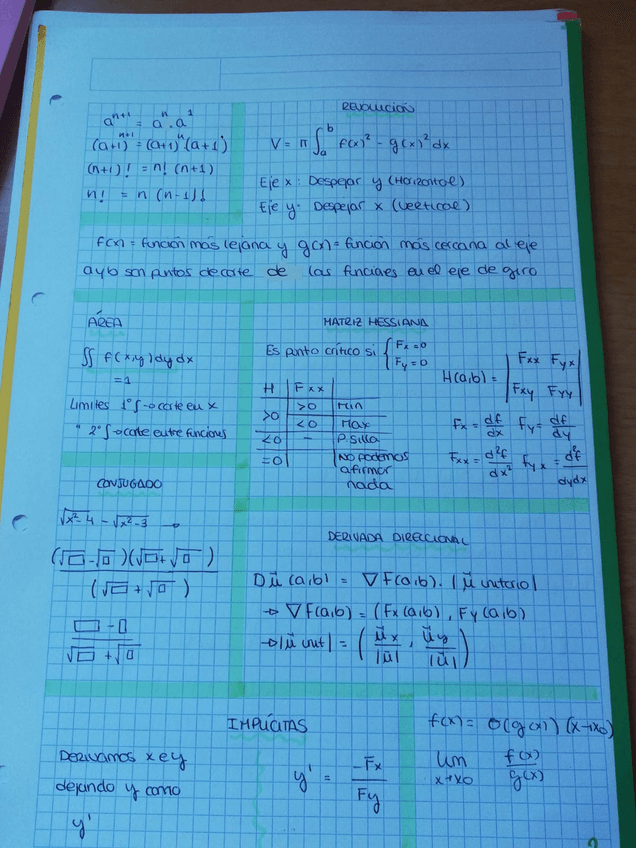 aⁿ⁺¹ = aⁿ · a¹
(a+1)ⁿ⁺¹ = (a+1)ⁿ(a+1)
(n+1)! = n! (n+1)
n! = n (n-1)!
REVOLUCIÓN
V = π ∫ₐᵇ f(x)² - g(x)² dx
Eje x: Despejar y (Horizontal)
Eje y: Despejar x (Vertical)
f(x) = función más lejana y g(x) = función más cercana al eje
a y b son puntos de corte de las funciones en el eje de giro
ÁREA
∬ f(x,y) dy dx
=1
Limites 1º ∫ → corte eu x
" 2º ∫ → corte entre funciones
MATRIZ HESSIANA
Es punto crítico si { Fx = 0
Fy = 0
H | Fxx |
>0 | >0 | Min
<0 | Max
<0 | - | P. silla
=0 | | No podemos
afirmar
nada
H(a,b) = | Fxx Fyx |
| Fxy Fyy |
Fx = df/dx Fy = df/dy
Fxx = d²f/dx² Fyx = d²f/dydx
CONJUGADO
√x²-4 - √x²-3 →
(√□ - √□)(√□ + √□)
(√□ + √□)
□ - □
√□ + √□
DERIVADA DIRECCIONAL
Dū (a,b) = ∇F(a,b) · |ū unitario|
→ ∇F(a,b) = (Fx(a,b), Fy(a,b)
→ |ū unit| = (ūx/|ū|, ūy/|ū|)
IMPLÍCITAS
Derivamos x e y
dejando y como
y'
y' = -Fx/Fy
f(x) = O(g(x)) (x→x0)
lim x→x0 f(x)/g(x)